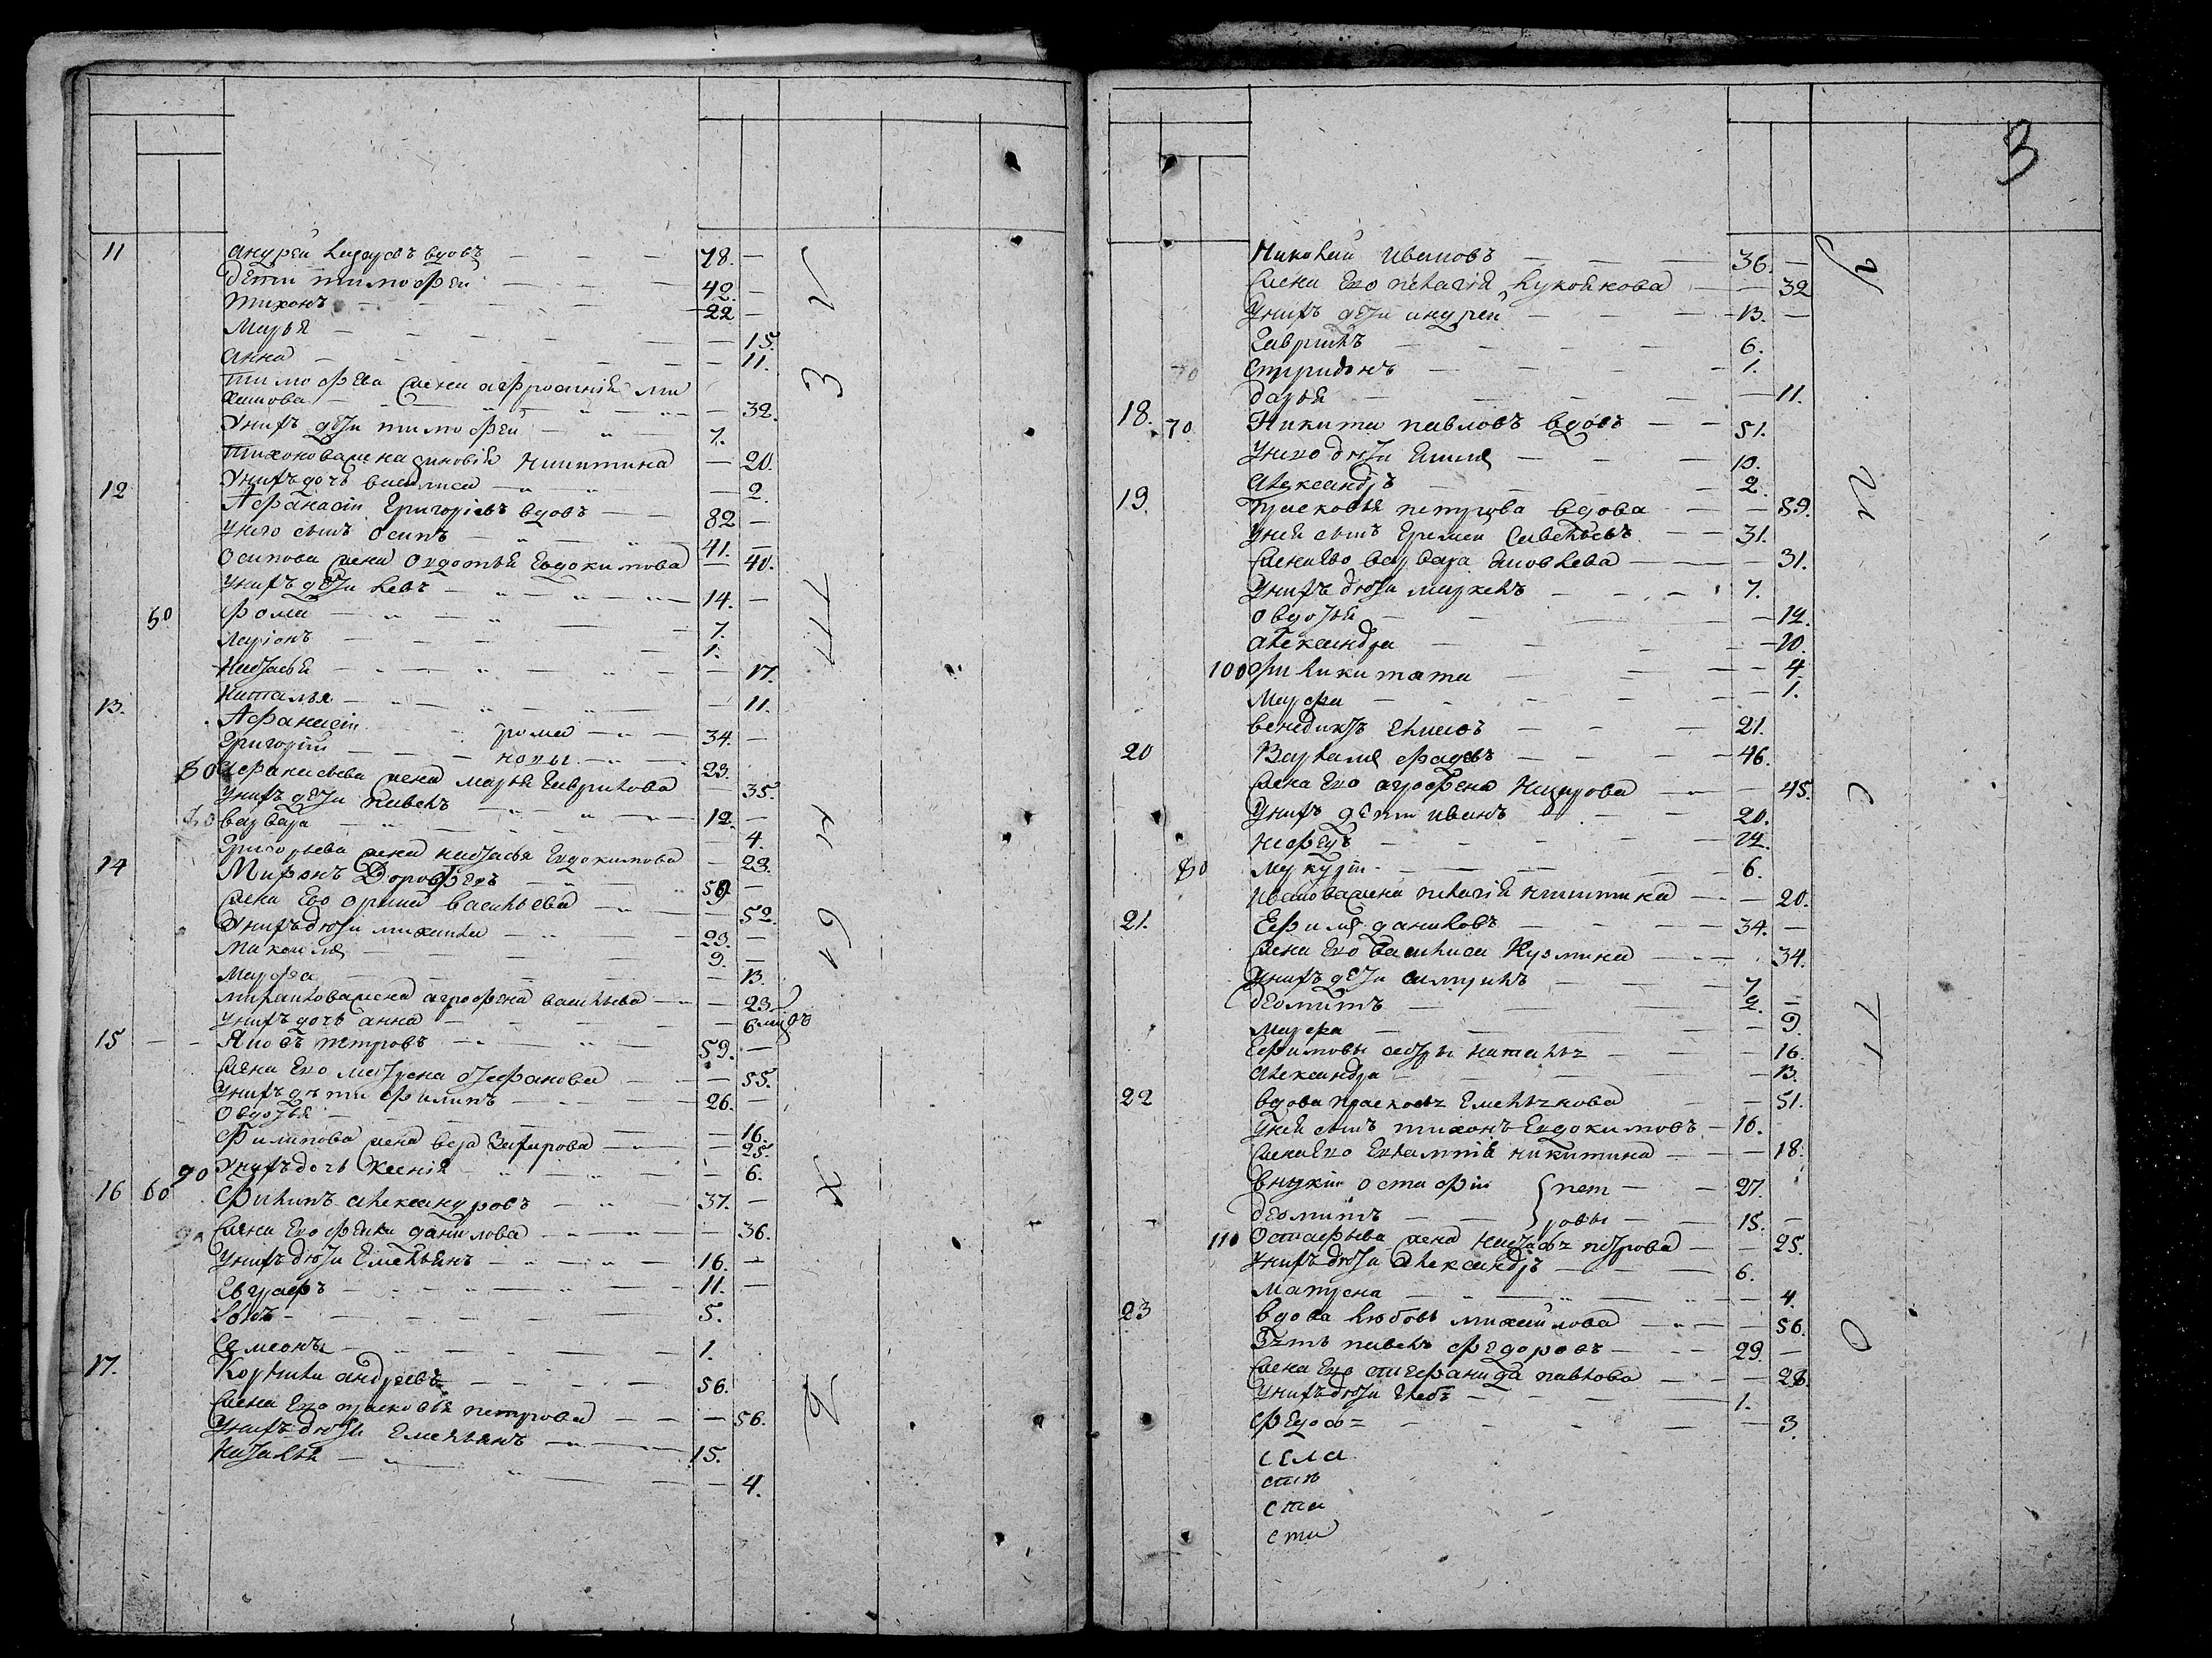 3
11 Андрей Лазаревъ вдовъ 78. —
дети тимофей 42. —
тихонъ 22 —
Марья — 15.
анна — 11.
тимофеева жена афросинія ми
хаилова — 32.
Унихъ дети тимофей 7.
тихонова жена зиновія Никитина — 20.
Унихъ дочь василиса — 2.
12 Афанасіи Григоріевъ вдовъ 82 —
Унего сынъ Осипъ 41. —
Осипова жена Овдотья Евдокимова — 40.
Унихъ дети левъ 14. —
50 фома 7.
Ларіонъ 1.
Настасья — 17.
Наталья — 11.
13. Афанасіи 34. —
Григорій 23.
80 Афанасьева жена марья Гаврилова — 35.
Унихъ дети павелъ 12. —
варвара — 4.
Григорьева жена настасья Евдокимова — 23.
14 Миронъ Дорофеевъ 59 —
жена Ево орина васильева — 52.
Унихъ дети михаила 23. —
9. —
Марфа — 13.
михаилова жена агрофена васильева — 23
Унихъ дочь анна — 6 мцовъ
15 Яковъ петровъ 59. —
жена Ево матрена стефанова — 55.
Унихъ дети филипъ 26. —
Овдотья — 16.
Филипова жена вера Захарова — 25.
90 Унихъ дочь Ксенія — 6.
16 60 Филипъ александровъ 37. —
90 жена Ево фекла данилова — 36.
Унихъ дети Емельянъ 16. —
Евграфъ 11. —
5.
Семеонъ 1.
17. Корнила андреевъ 56.
жена Ево прасковья петрова — 56.
Унихъ дети Емельянъ 15.
Наталья — 4.
Николай Ивановъ 36. —
жена Ево пелагія Лукоянова — 32
Унихъ дети андрей 13. —
Гаврилъ 6.
70 Спиридонъ 1.
дарья — 11.
18. 70 Никита павловъ вдовъ 51.
Унево дети 10.
Александръ 2.
19. Прасковья петрова вдова — 59.
Уней сынъ Еремей Савельевъ 31.
жена Ево варвара Яковлева — 31.
Унихъ дети маркелъ 7.
Овдотья — 14.
александра — 10.
100 филикитата — 4.
Марфа — 1.
венедиктъ 21.
20 Варламе фадеевъ 46.
жена Ево агрофена Назарова — 45.
Унихъ дети иванъ 20.
нефедъ 14.
80 меркуріи 6.
Иванова жена пелагія никитина — 20.
21. Ефимъ даниловъ 34. —
жена Ево василиса Кузмина — 34.
Унихъ дети гаврилъ 7
деомитъ 2. —
марфа — 9.
Ефимовы сестры наталья — 16.
александра — 13.
22 вдова прасковья Емельянова — 51.
Уней сынъ тихонъ Евдокимовъ 16.
жена Ево Евлампія никитина — 18.
внуки остафіи { пет 27.
деомитъ } ровы 15. —
110 Остафьева жена настасья петрова — 25.
Унихъ дети александръ 6.
матрена — 4.
23 вдова любовь михайлова — 56.
Зять павелъ федоровъ 29. —
жена Ево стефанида павлова — 28.
Унихъ дети Глебъ 1.
федос — 3.
села
ста
сти